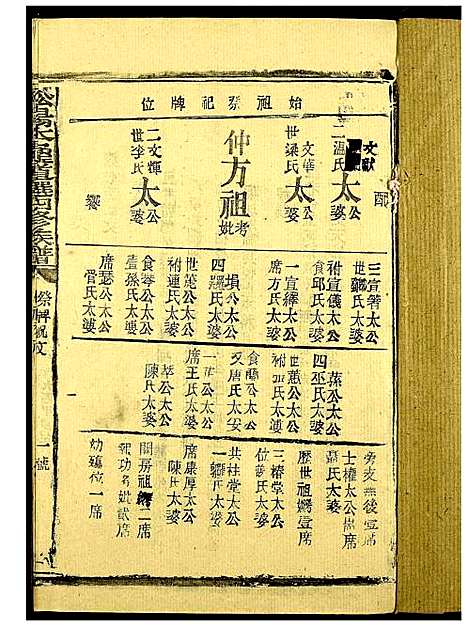 始祖祭祀牌位
配
文獻
二溫氏太公婆
文華
世梁氏太公婆
仲方祖考妣
二文輝
世李氏太公婆
饗
三宣著太公
世鄒氏太婆
祔宣儀太公
食邱氏太婆
一宣繹太公
席方氏太婆
塤公太公
四羅氏太婆
世范公太公
祔連氏太婆
食岑公太公
壹孫氏太婆
席瑟公太公
管氏太婆
蒸公太公
四巫氏太婆
世蕙公太公
祔 氏太婆
食 公太公
又唐氏太安
一 公太公
席王氏太婆
萃公太公
陳氏太婆
旁支無後壹席
士權太公 席
聶氏太婆
歷世祖 壹席
三椿堂太公
位 氏太婆
共桂堂太公
一 氏太婆
席康厚太公
陳氏太婆
闔房祖 二席
報功名妣貳席
幼殤位一席
四修族譜
祭牌祝文
一號